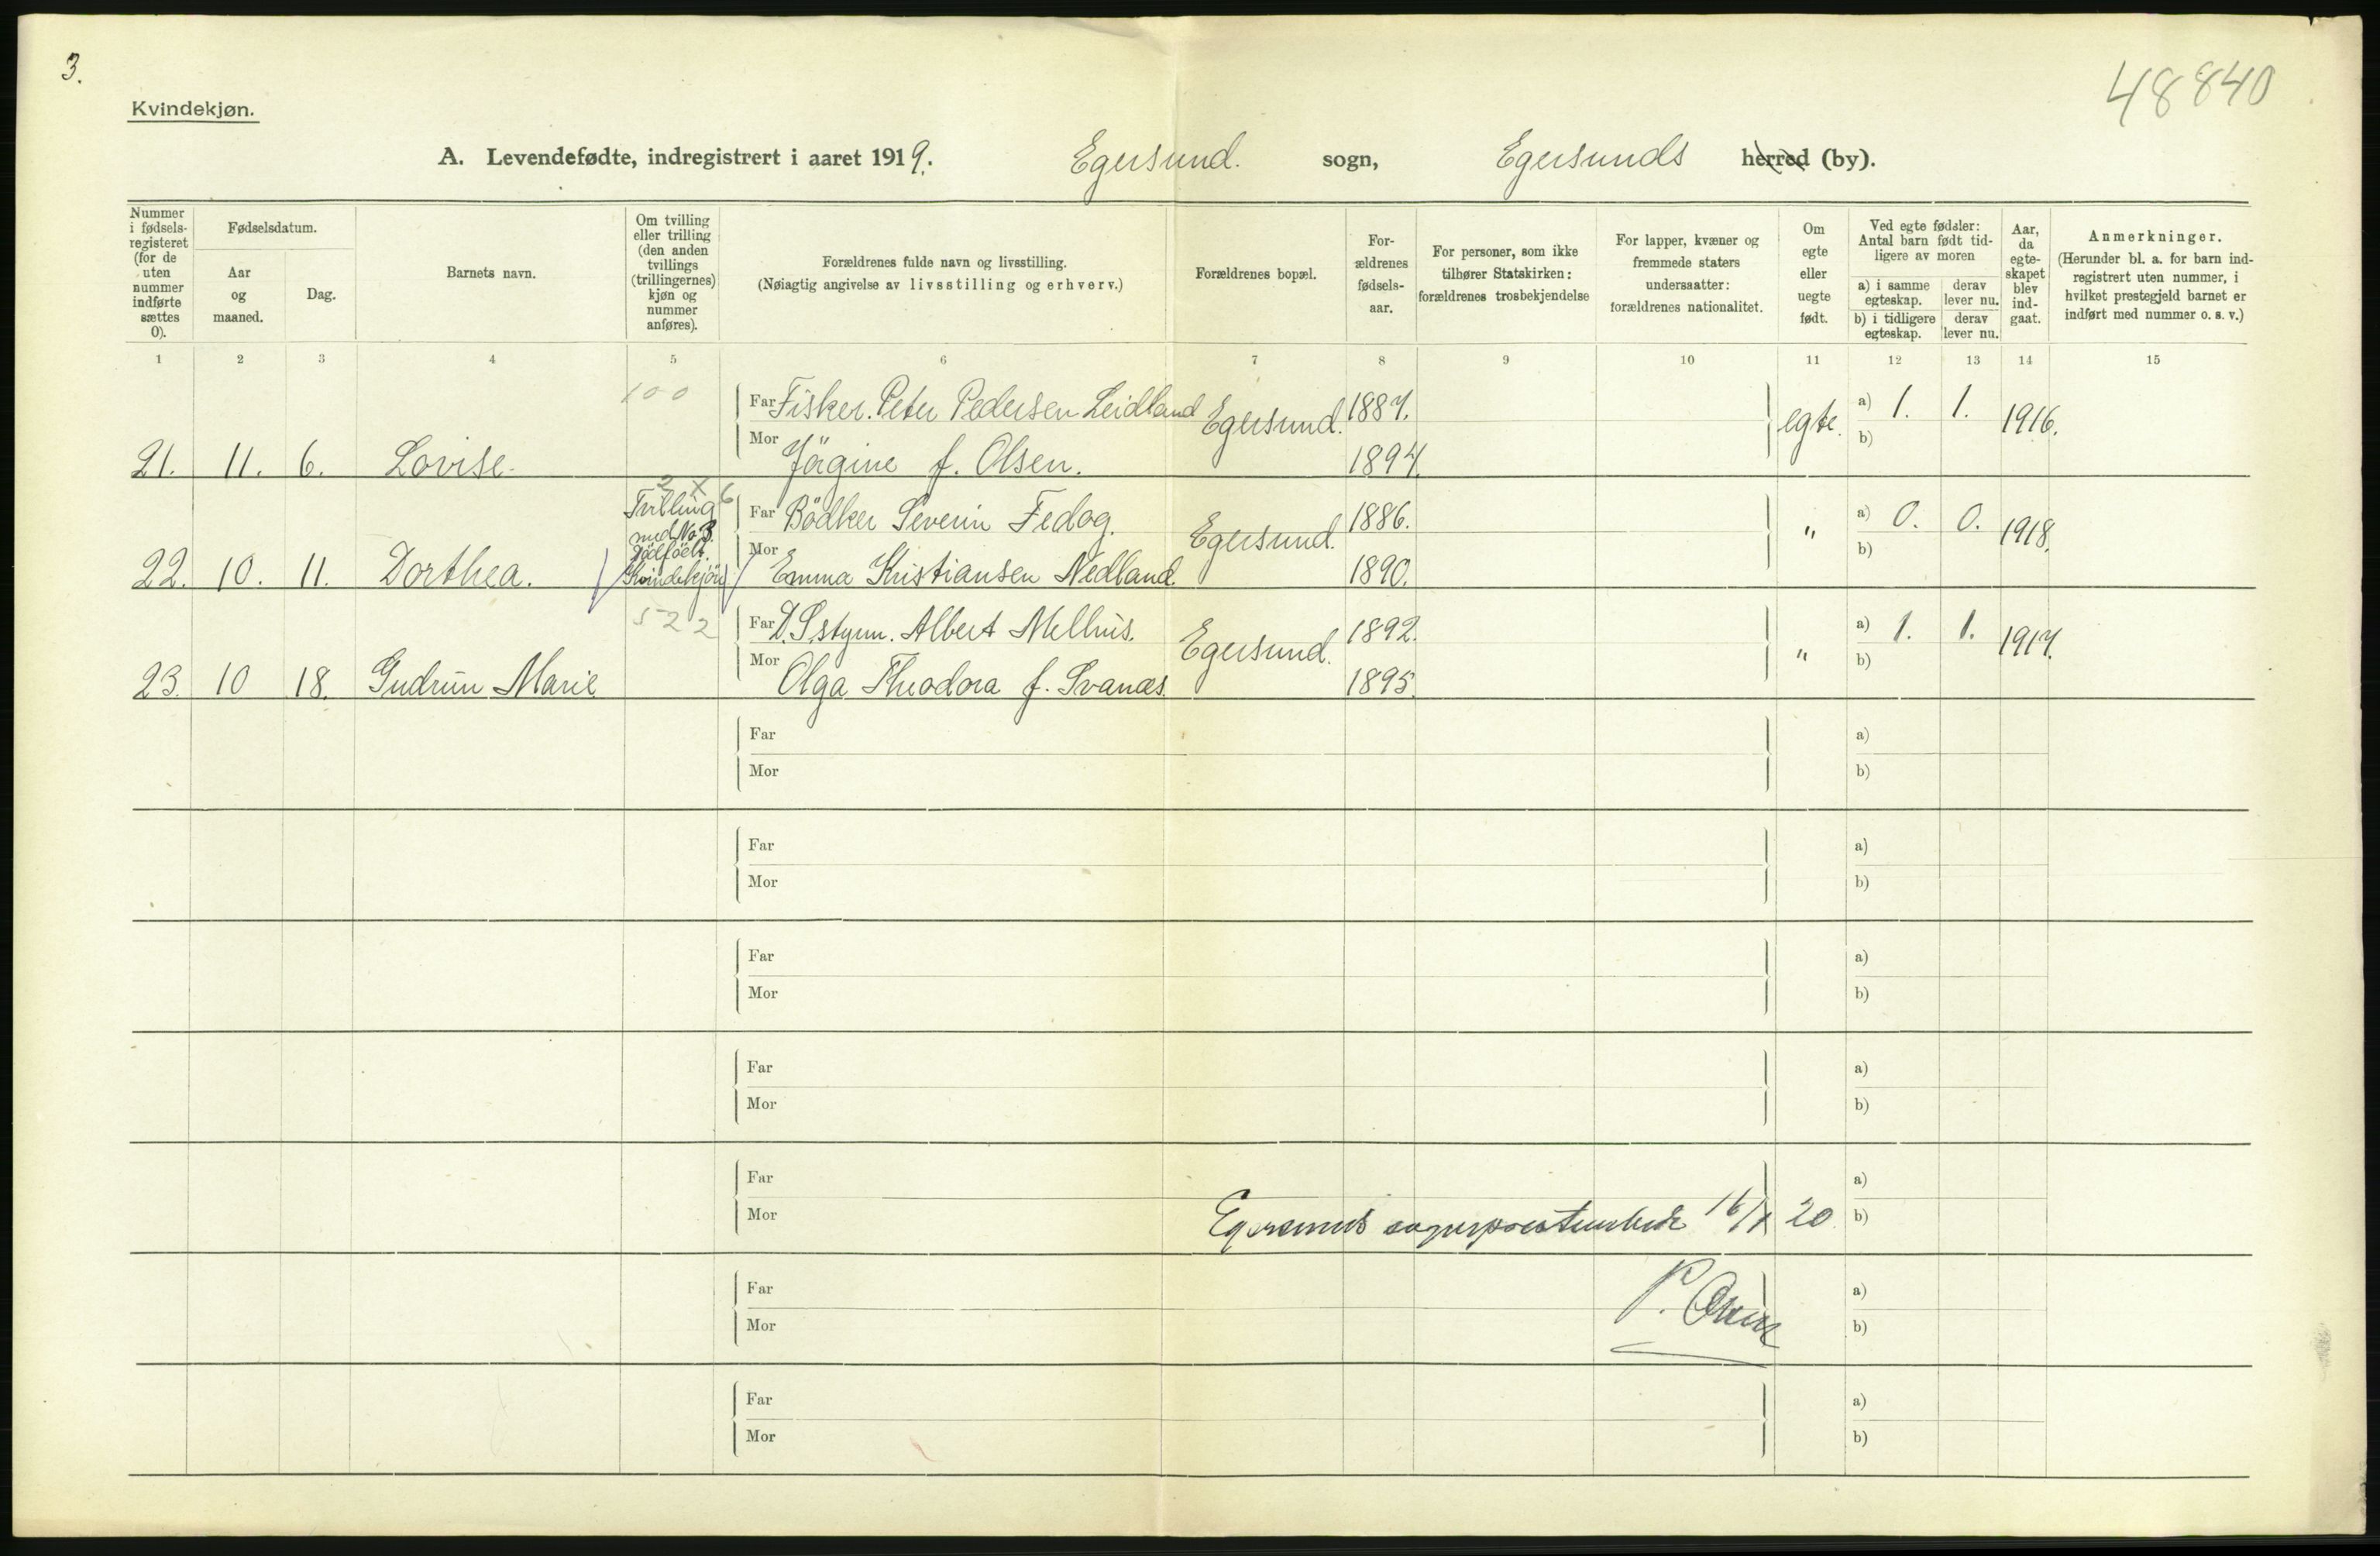 3.
48840
Kvindekjøn.
A. Levendefødte, indregistrert i aaret 1919. Egersund. sogn, Egersunds herred (by).
Nummer i fødselsregisteret (for de uten nummer indførte sættes 0).
Fødselsdatum.
Aar og maaned.
Dag.
Barnets navn.
Om tvilling eller trilling (den anden tvillings (trillingernes) kjøn og nummer anføres).
Forældrenes fulde navn og livsstilling.
(Nøiagtig angivelse av livsstilling og erhverv.)
Forældrenes bopæl.
Forældrenes fødselsaar.
For personer, som ikke tilhører Statskirken: forældrenes trosbekjendelse
For lapper, kvæner og fremmede staters undersaatter: forældrenes nationalitet.
Om egte eller uegte født.
Ved egte fødsler: Antal barn født tidligere av moren
a) i samme egteskap.
derav lever nu.
b) i tidligere egteskap.
derav lever nu.
Aar, da egteskapet blev indgaat.
Anmerkninger.
(Herunder bl. a. for barn indregistrert uten nummer, i hvilket prestegjeld barnet er indført med nummer o. s. v.)
1 2 3 4 5 6 7 8 9 10 11 12 13 14 15
100
Far Fisker. Peter Pedersen Leidland Egersund. 1887. egte. a) 1. 1. 1916.
21. 11. 6. Lovise. Mor Jörgine f. Olsen. 1894. b)
2 x 6
Tvilling med No 3. Dödfödt. Kvindekjön
Far Bödker Severin Fedog. Egersund. 1886. " a) 0. 0. 1918.
22. 10. 11. Dorthea. Mor Emma Kristiansen Nedland. 1890. b)
522
Far D.S.styrm. Albert Mellhus. Egersund. 1892. " a) 1. 1. 1917.
23. 10 18. Gudrun Marie Mor Olga Theodora f. Svanæs. 1895. b)
Far a)
Mor b)
Far a)
Mor b)
Far a)
Mor b)
Far a)
Mor b)
Far a)
Mor Egersunds sogneprestembede 16/1 20. b)
Far a)
P.
Mor b)
Far a)
Mor b)